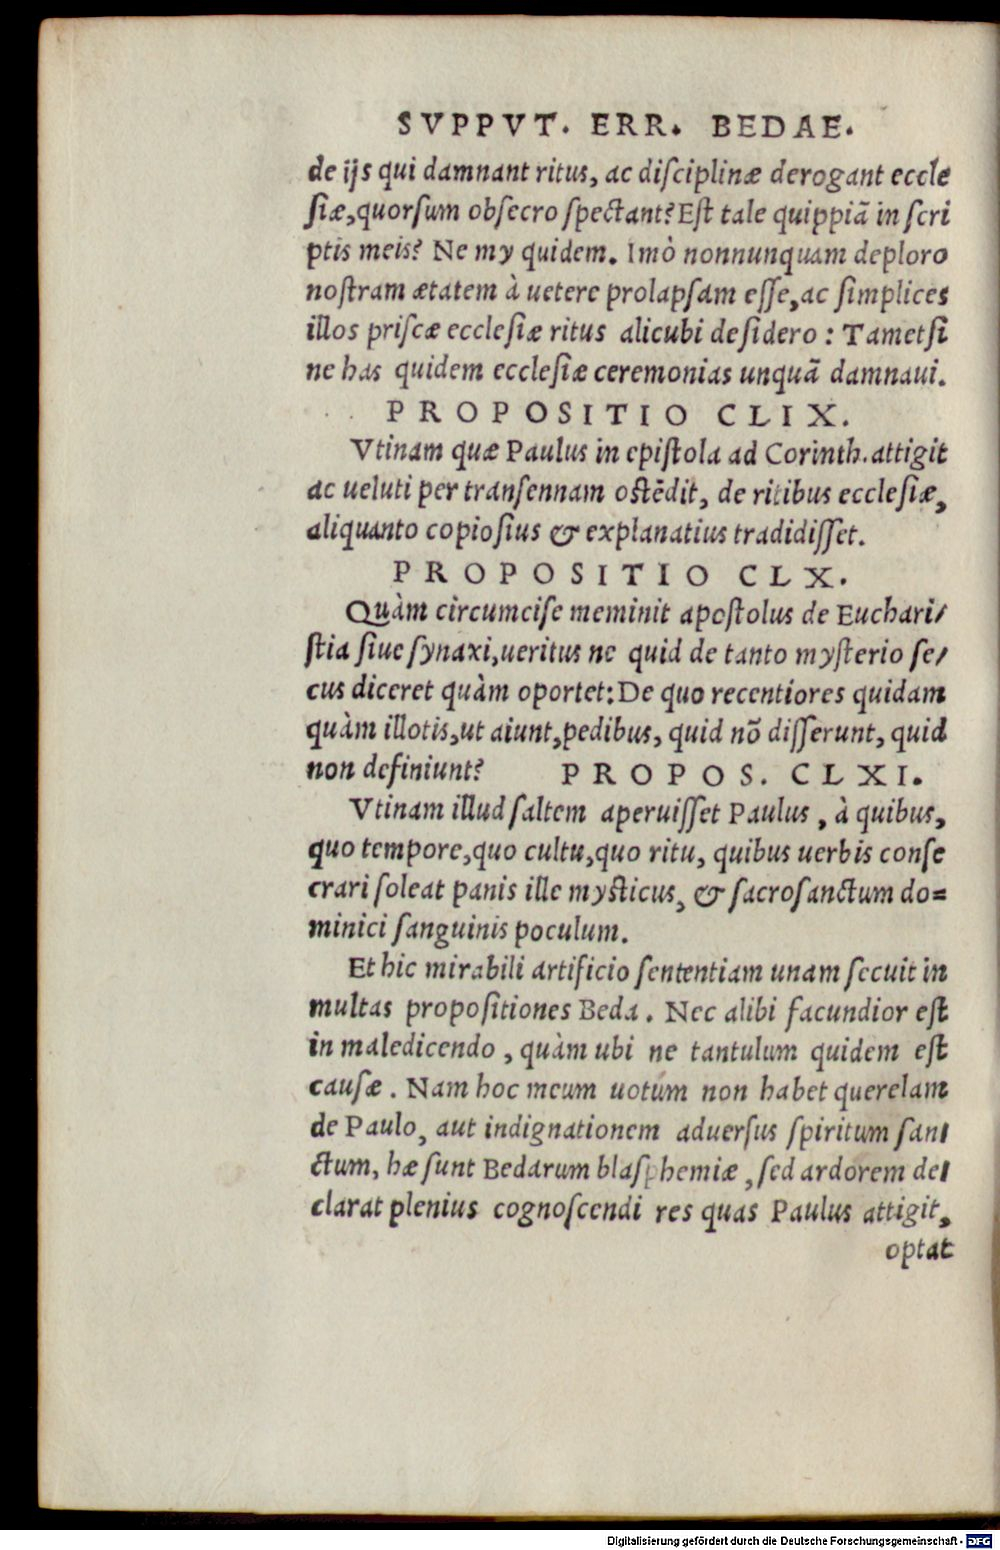 SVPPVT. ERR. BEDAE.
de ijs qui damnant ritus, ac disciplinæ derogant eccle
siæ, quorsum obsecro spectant? Est tale quippiã in scri
ptis meis? Ne my quidem. Imò nonnunquam deploro
nostram ætatem à uetere prolapsam esse, ac simplices
illos priscæ ecclesiæ ritus alicubi desidero : Tametsi
ne has quidem ecclesiæ ceremonias unquã damnaui.
PROPOSITIO CLIX.
Vtinam quæ Paulus in epistola ad Corinth. attigit
ac ueluti per transennam ostẽdit, de ritibus ecclesiæ,
aliquanto copiosius & explanatius tradidisset.
PROPOSITIO CLX.
Quàm circumcise meminit apostolus de Euchari/
stia siue synaxi, ueritus ne quid de tanto mysterio se/
cus diceret quàm oportet: De quo recentiores quidam
quàm illotis, ut aiunt, pedibus, quid nõ disserunt, quid
non definiunt? PROPOS. CLXI.
Vtinam illud saltem aperuisset Paulus, à quibus,
quo tempore, quo cultu, quo ritu, quibus uerbis conse
crari soleat panis ille mysticus, & sacrosanctum do=
minici sanguinis poculum.
Et hic mirabili artificio sententiam unam secuit in
multas propositiones Beda. Nec alibi facundior est
in maledicendo, quàm ubi ne tantulum quidem est
causæ. Nam hoc meum uotum non habet querelam
de Paulo, aut indignationem aduersus spiritum san/
ctum, hæ sunt Bedarum blasphemiæ, sed ardorem de/
clarat plenius cognoscendi res quas Paulus attigit,
optat
Digitalisierung gefördert durch die Deutsche Forschungsgemeinschaft - DFG